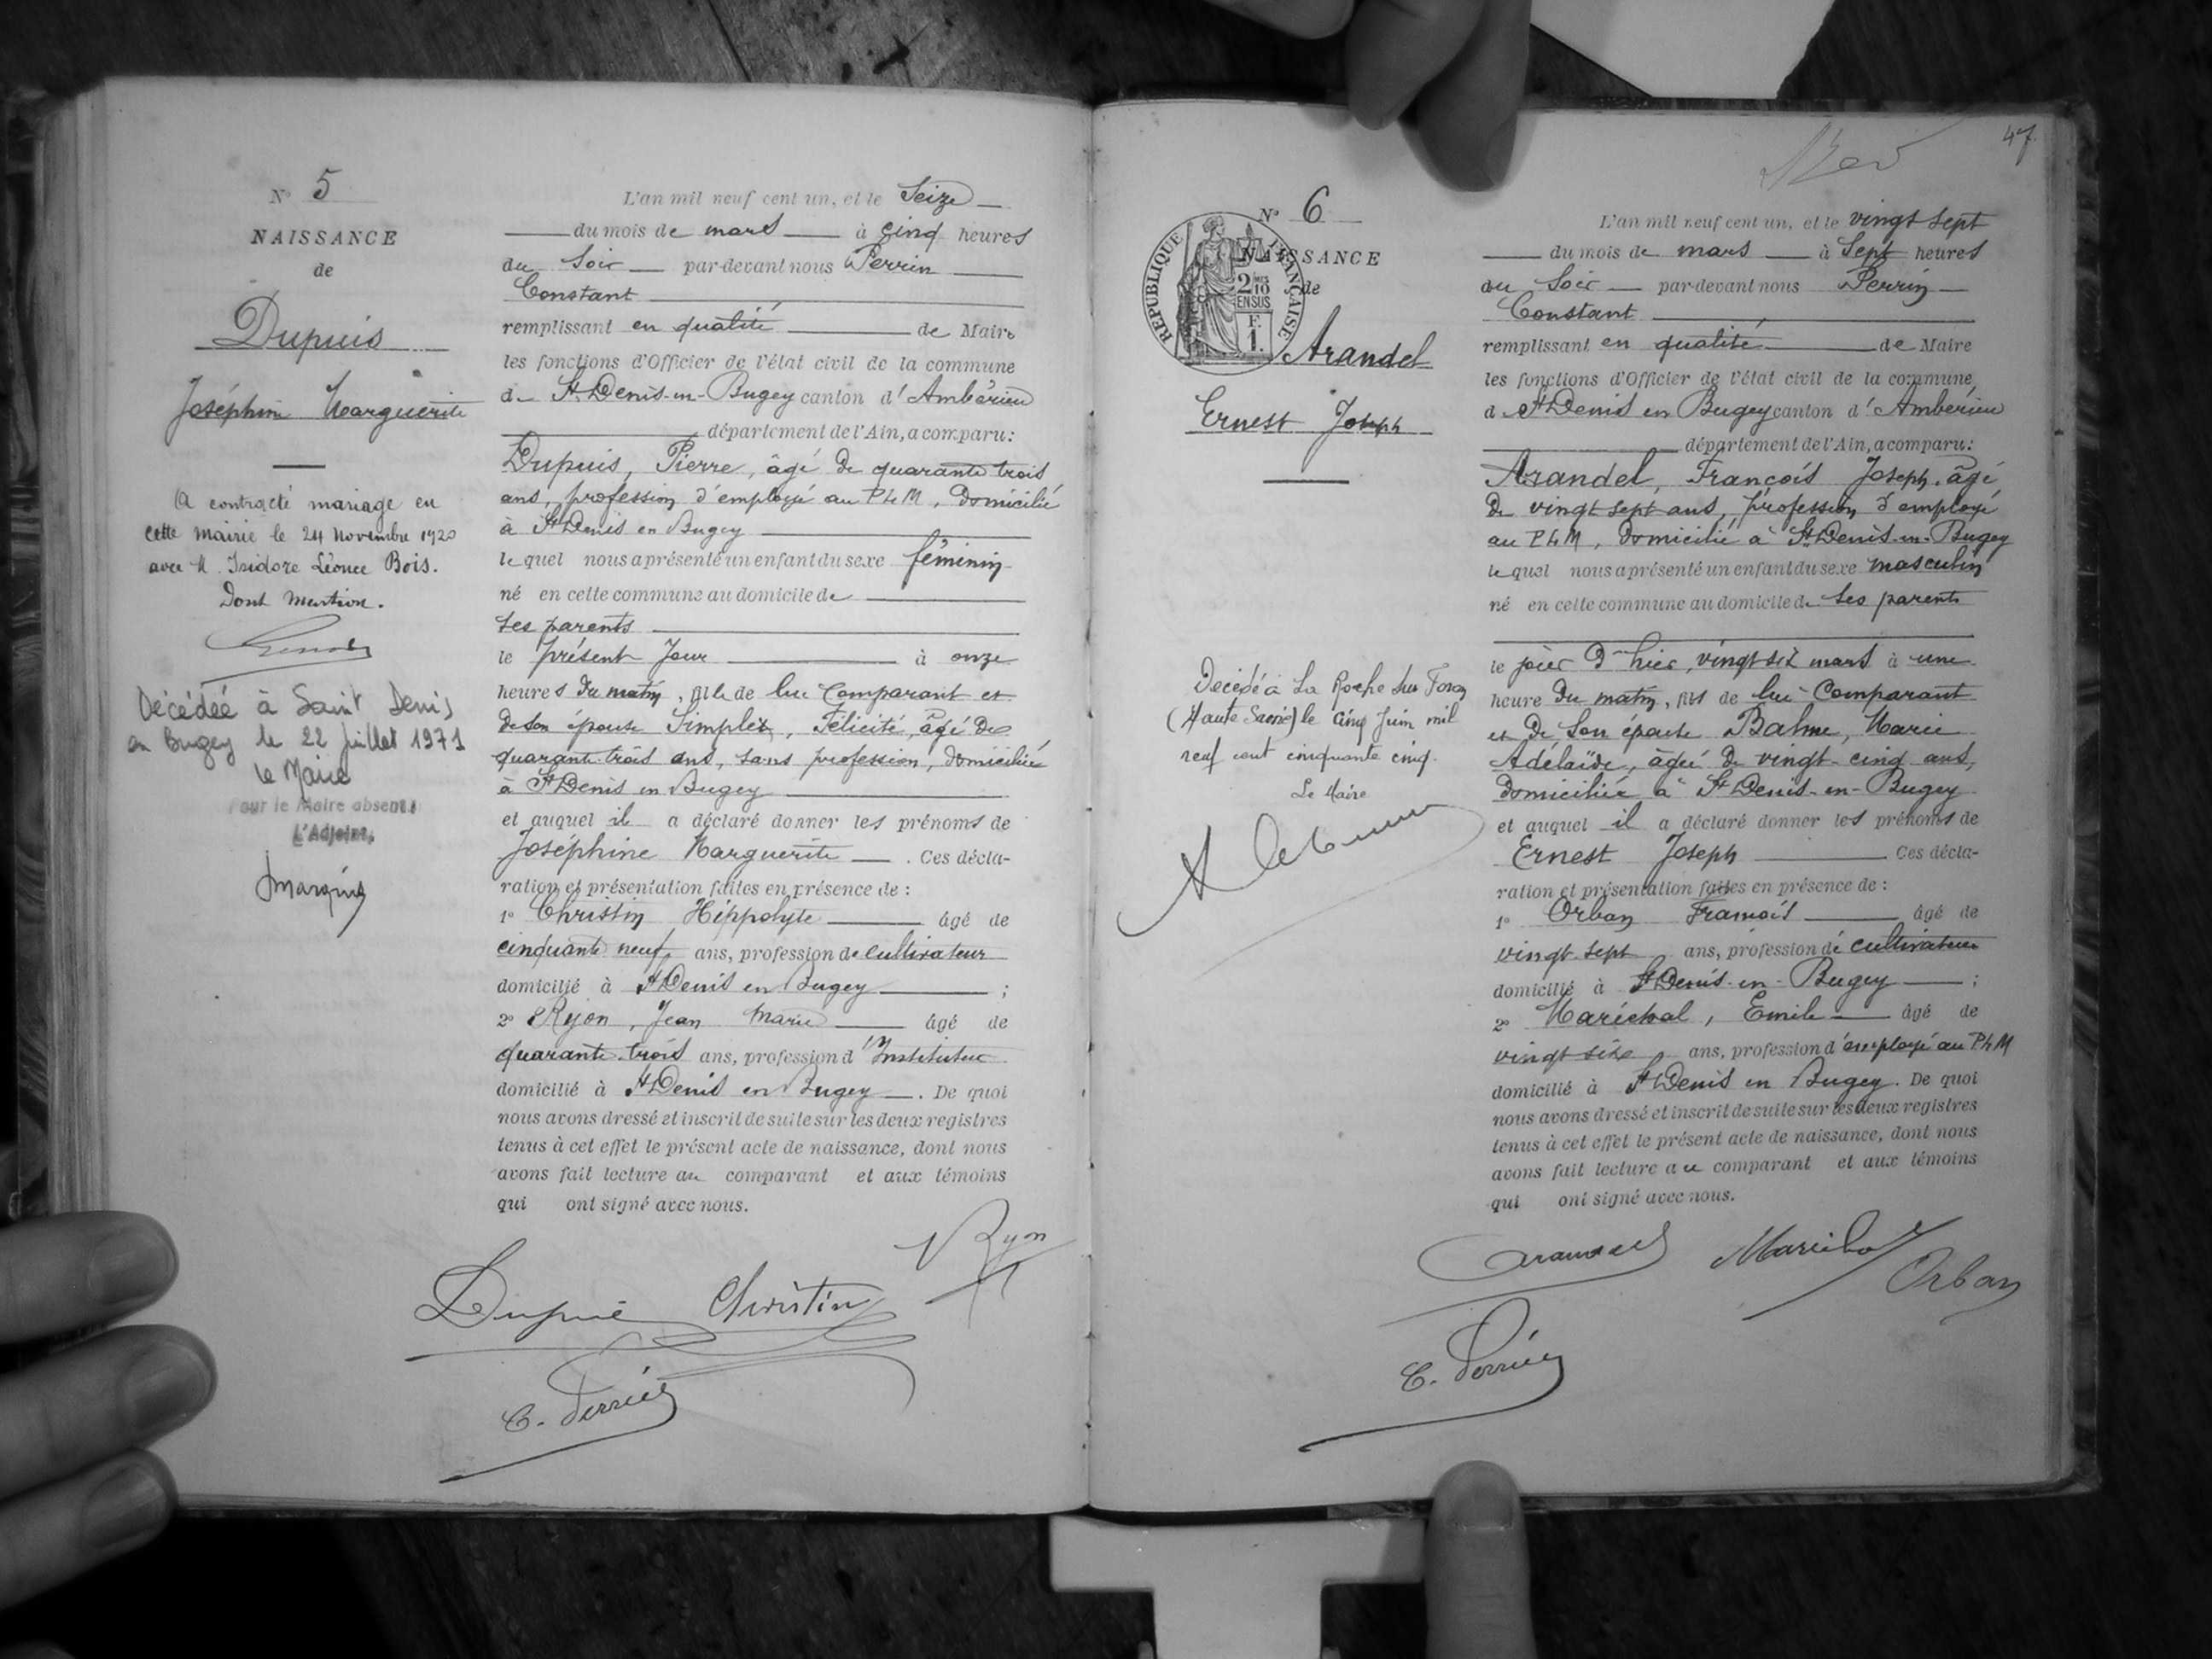 N° 5
NAISSANCE
de
Dupuis
Joséphine Marguerite
A contracté mariage en
cette mairie le 24 Novembre 1920
avec M. Isidore Léonce Bois.
Dont mention.
Décédée à Saint Denis
en Bugey le 22 juillet 1971
Le Maire
Pour le Maire absent :
L'Adjoint,
L'an mil neuf cent un, et le Seize
du mois de mars à cinq heures
du Soir par-devant nous Perrin
Constant
remplissant en qualité de Maire
les fonctions d'Officier de l'état civil de la commune
de St Denis-en-Bugey canton d'Ambérieu
département de l'Ain, a comparu :
Dupuis, Pierre, âgé de quarante trois
ans, profession d'employé au PLM, domicilié
à St Denis en Bugey
lequel nous a présenté un enfant du sexe féminin
né en cette commune au domicile de
ses parents
le présent jour à onze
heures du matin, fille de lui Comparant et
de son épouse Simplex, Félicité âgé de
quarante trois ans, sans profession, domiciliée
à St Denis en Bugey
et auquel il a déclaré donner les prénoms de
Joséphine Marguerite . Ces décla-
ration et présentation faites en présence de :
1° Christin Hippolyte âgé de
cinquante neuf ans, profession de cultivateur
domicilié à St Denis en Bugey ;
2° Ryon, Jean Marie âgé de
quarante trois ans, profession d'Instituteur
domicilié à St Denis en Bugey . De quoi
nous avons dressé et inscrit de suite sur les deux registres
tenus à cet effet le présent acte de naissance, dont nous
avons fait lecture au comparant et aux témoins
qui ont signé avec nous.
Ryon
Dupuis Christin
C. Perrin
47
N° 6
NAISSANCE
de
REPUBLIQUE FRANÇAISE
2/10 EN SUS
F.
1.
Arandel
Ernest Joseph
Décédé à La Roche sur Foron
(Haute Savoie) le cinq Juin mil
neuf cent cinquante cinq.
Le Maire
L'an mil neuf cent un, et le vingt sept
du mois de mars à Sept heures
du Soir par-devant nous Perrin
Constant
remplissant en qualité de Maire
les fonctions d'Officier de l'état civil de la commune
d St Denis en Bugey canton d'Ambérieu
département de l'Ain, a comparu :
Arandel, François Joseph, âgé
de vingt sept ans, profession d'employé
au PLM, domicilié à St Denis-en-Bugey
lequel nous a présenté un enfant du sexe masculin
né en cette commune au domicile de ses parents
le jour d'hier, vingt six mars à une
heure du matin, fils de lui Comparant
et de son épouse Balme, Marie
Adélaïde, âgée de vingt-cinq ans,
domiciliée à St Denis-en-Bugey
et auquel il a déclaré donner les prénoms de
Ernest Joseph Ces décla-
ration et présentation faites en présence de :
1° Orban François âgé de
vingt sept ans, profession de cultivateur
domicilié à St Denis-en-Bugey ;
2° Maréchal, Emile âgé de
vingt six ans, profession d'employé au PLM
domicilié à St Denis en Bugey. De quoi
nous avons dressé et inscrit de suite sur les deux registres
tenus à cet effet le présent acte de naissance, dont nous
avons fait lecture au comparant et aux témoins
qui ont signé avec nous.
Arandel Maréchal
Orban
C. Perrin